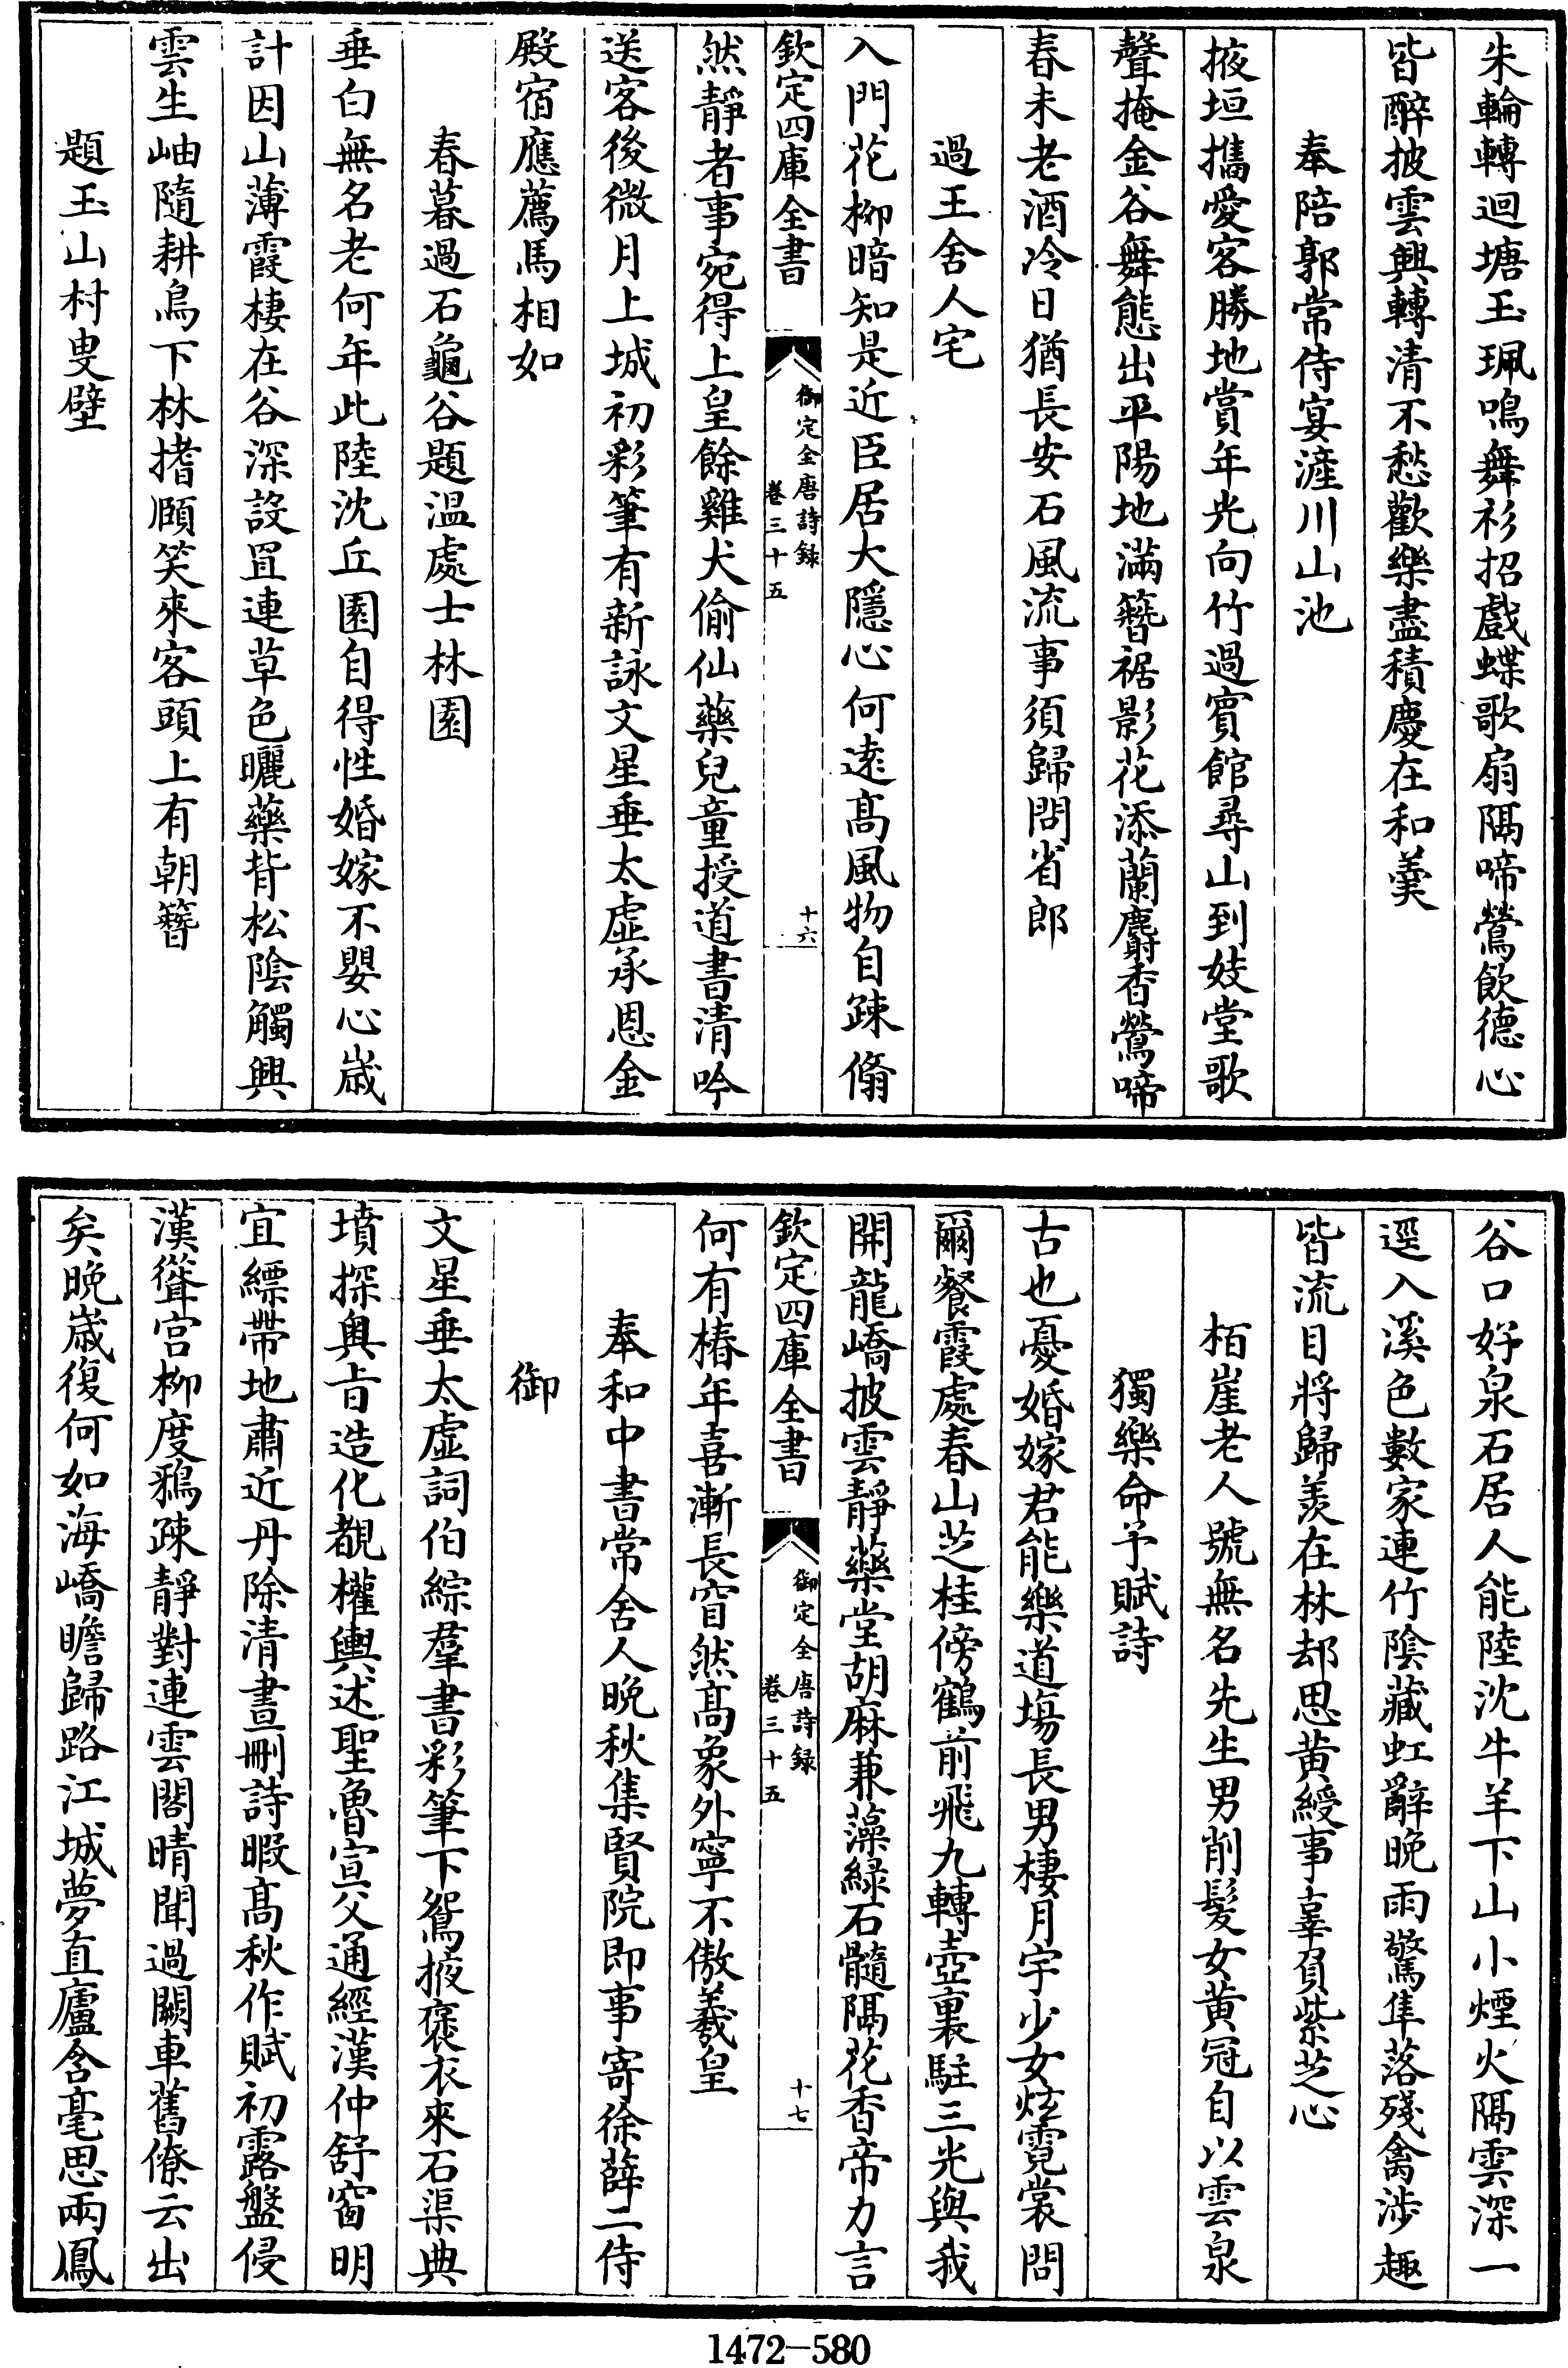 朱輪轉迴塘玉珮鳴舞衫招戲蝶歌扇隔啼鶯飲德心
皆醉披雲興轉清不愁歡樂盡積慶在和羹
奉陪郭常侍宴滻川山池
掖垣攜愛客勝地賞年光向竹過賓館尋山到妓堂歌
聲掩金谷舞態出平陽地滿簪裾影花添蘭麝香鶯啼
春未老酒冷日猶長安石風流事須歸問省郎
過王舍人宅
入門花柳暗知是近臣居大隱心何遠髙風物自疎翛
欽定四庫全書
御定全唐詩録
卷三十五
十六
然靜者事宛得上皇餘雞犬偷仙藥兒童授道書清吟
送客後微月上城初彩筆有新詠文星垂太虛承恩金
殿宿應薦馬相如
春暮過石龜谷題温處士林園
垂白無名老何年此陸沈丘園自得性婚嫁不嬰心歲
計因山薄霞棲在谷深設罝連草色曬藥背松陰觸興
雲生岫隨耕鳥下林搘頤笑來客頭上有朝簪
題玉山村叟壁
谷口好泉石居人能陸沈牛羊下山小煙火隔雲深一
逕入溪色數家連竹陰藏虹辭晩雨驚隼落殘禽渉趣
皆流目將歸羡在林却思黄綬事辜負紫芝心
栢崖老人號無名先生男削髮女黄冠自以雲泉
獨樂命予賦詩
古也憂婚嫁君能樂道塲長男棲月宇少女炫霓裳問
爾餐霞處春山芝桂傍鶴前飛九轉壺裏駐三光與我
開龍嶠披雲靜藥堂胡麻兼藻緑石髓隔花香帝力言
欽定四庫全書
御定全唐詩録
卷三十五
十七
何有椿年喜漸長窅然髙象外寧不傲羲皇
奉和中書常舍人晩秋集賢院即事寄徐薛二侍
御
文星垂太虛詞伯綜羣書彩筆下鴛掖褒衣來石渠典
墳探奥㫖造化覩權輿述聖魯宣父通經漢仲舒窗明
宜縹帶地肅近丹除清晝刪詩暇髙秋作賦初露盤侵
漢聳宫柳度鴉疎靜對連雲閣晴聞過闕車舊僚云出
矣晩歳復何如海嶠瞻歸路江城夢直廬含毫思兩鳳
1472-580